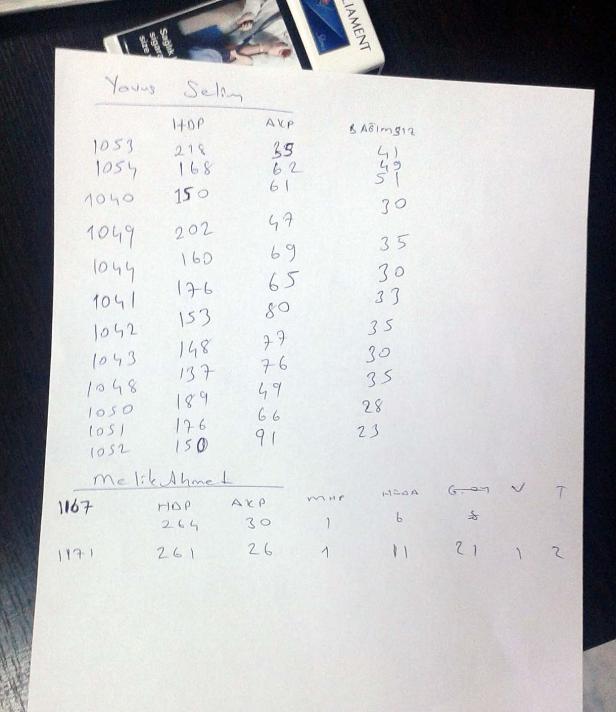 Sağlık
sigara
size
LIAMENT
Yavuz Selim
HDP AKP BAĞIMSIZ
1053 218 39 41
1054 168 62 49
1040 150 61 51
1049 202 47 30
1044 160 69 35
1041 176 65 30
1042 153 80 33
1043 148 77 35
1048 137 76 30
1050 189 49 35
1051 176 66 28
1052 150 91 23
Melik Ahmet
1167 HDP AKP MHP V T
264 30 1 6
1171 261 26 1 11 21 1 2